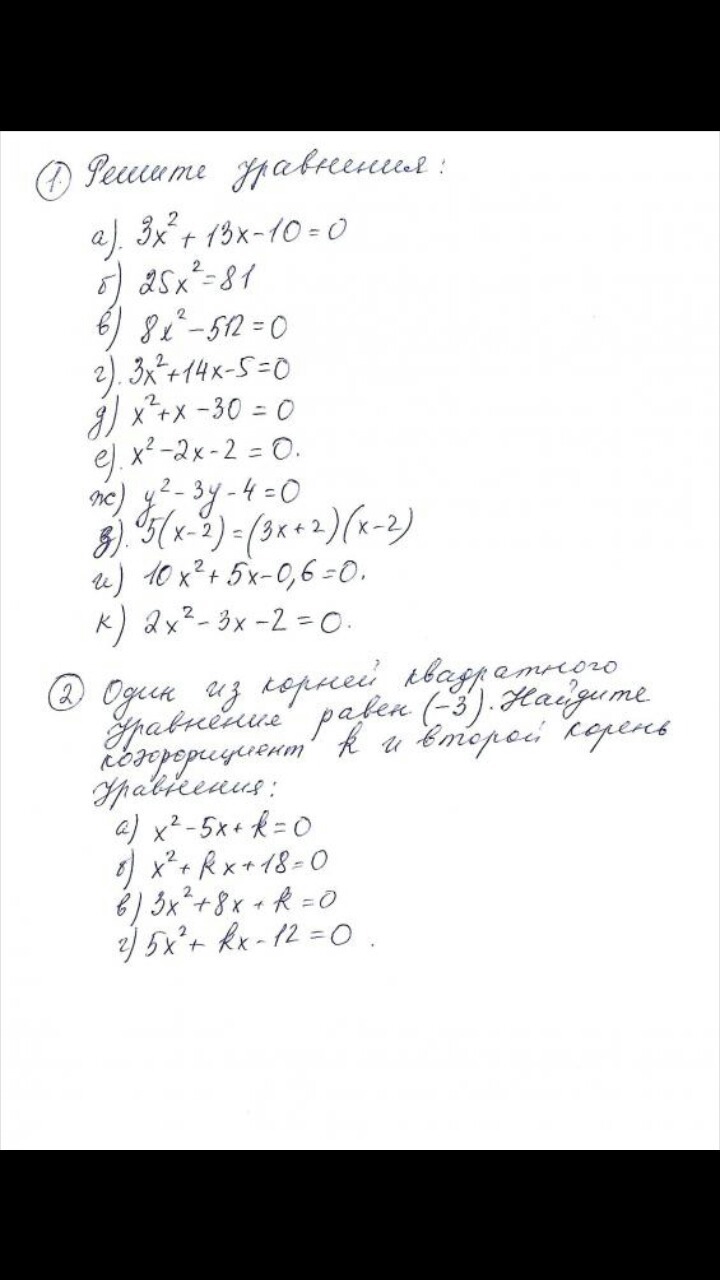 1. Решите уравнения:
а). 3x²+13x-10=0
б) 25x²=81
в) 8x²-512=0
г). 3x²+14x-5=0
д) x²+x-30=0
е). x²-2x-2=0.
ж) y²-3y-4=0
з). 5(x-2)=(3x+2)(x-2)
и) 10x²+5x-0,6=0.
к) 2x²-3x-2=0.
2 Один из корней квадратного
уравнения равен (-3). Найдите
коэффициент k и второй корень
уравнения:
а) x²-5x+k=0
б) x²+kx+18=0
в) 3x²+8x+k=0
г) 5x²+kx-12=0.